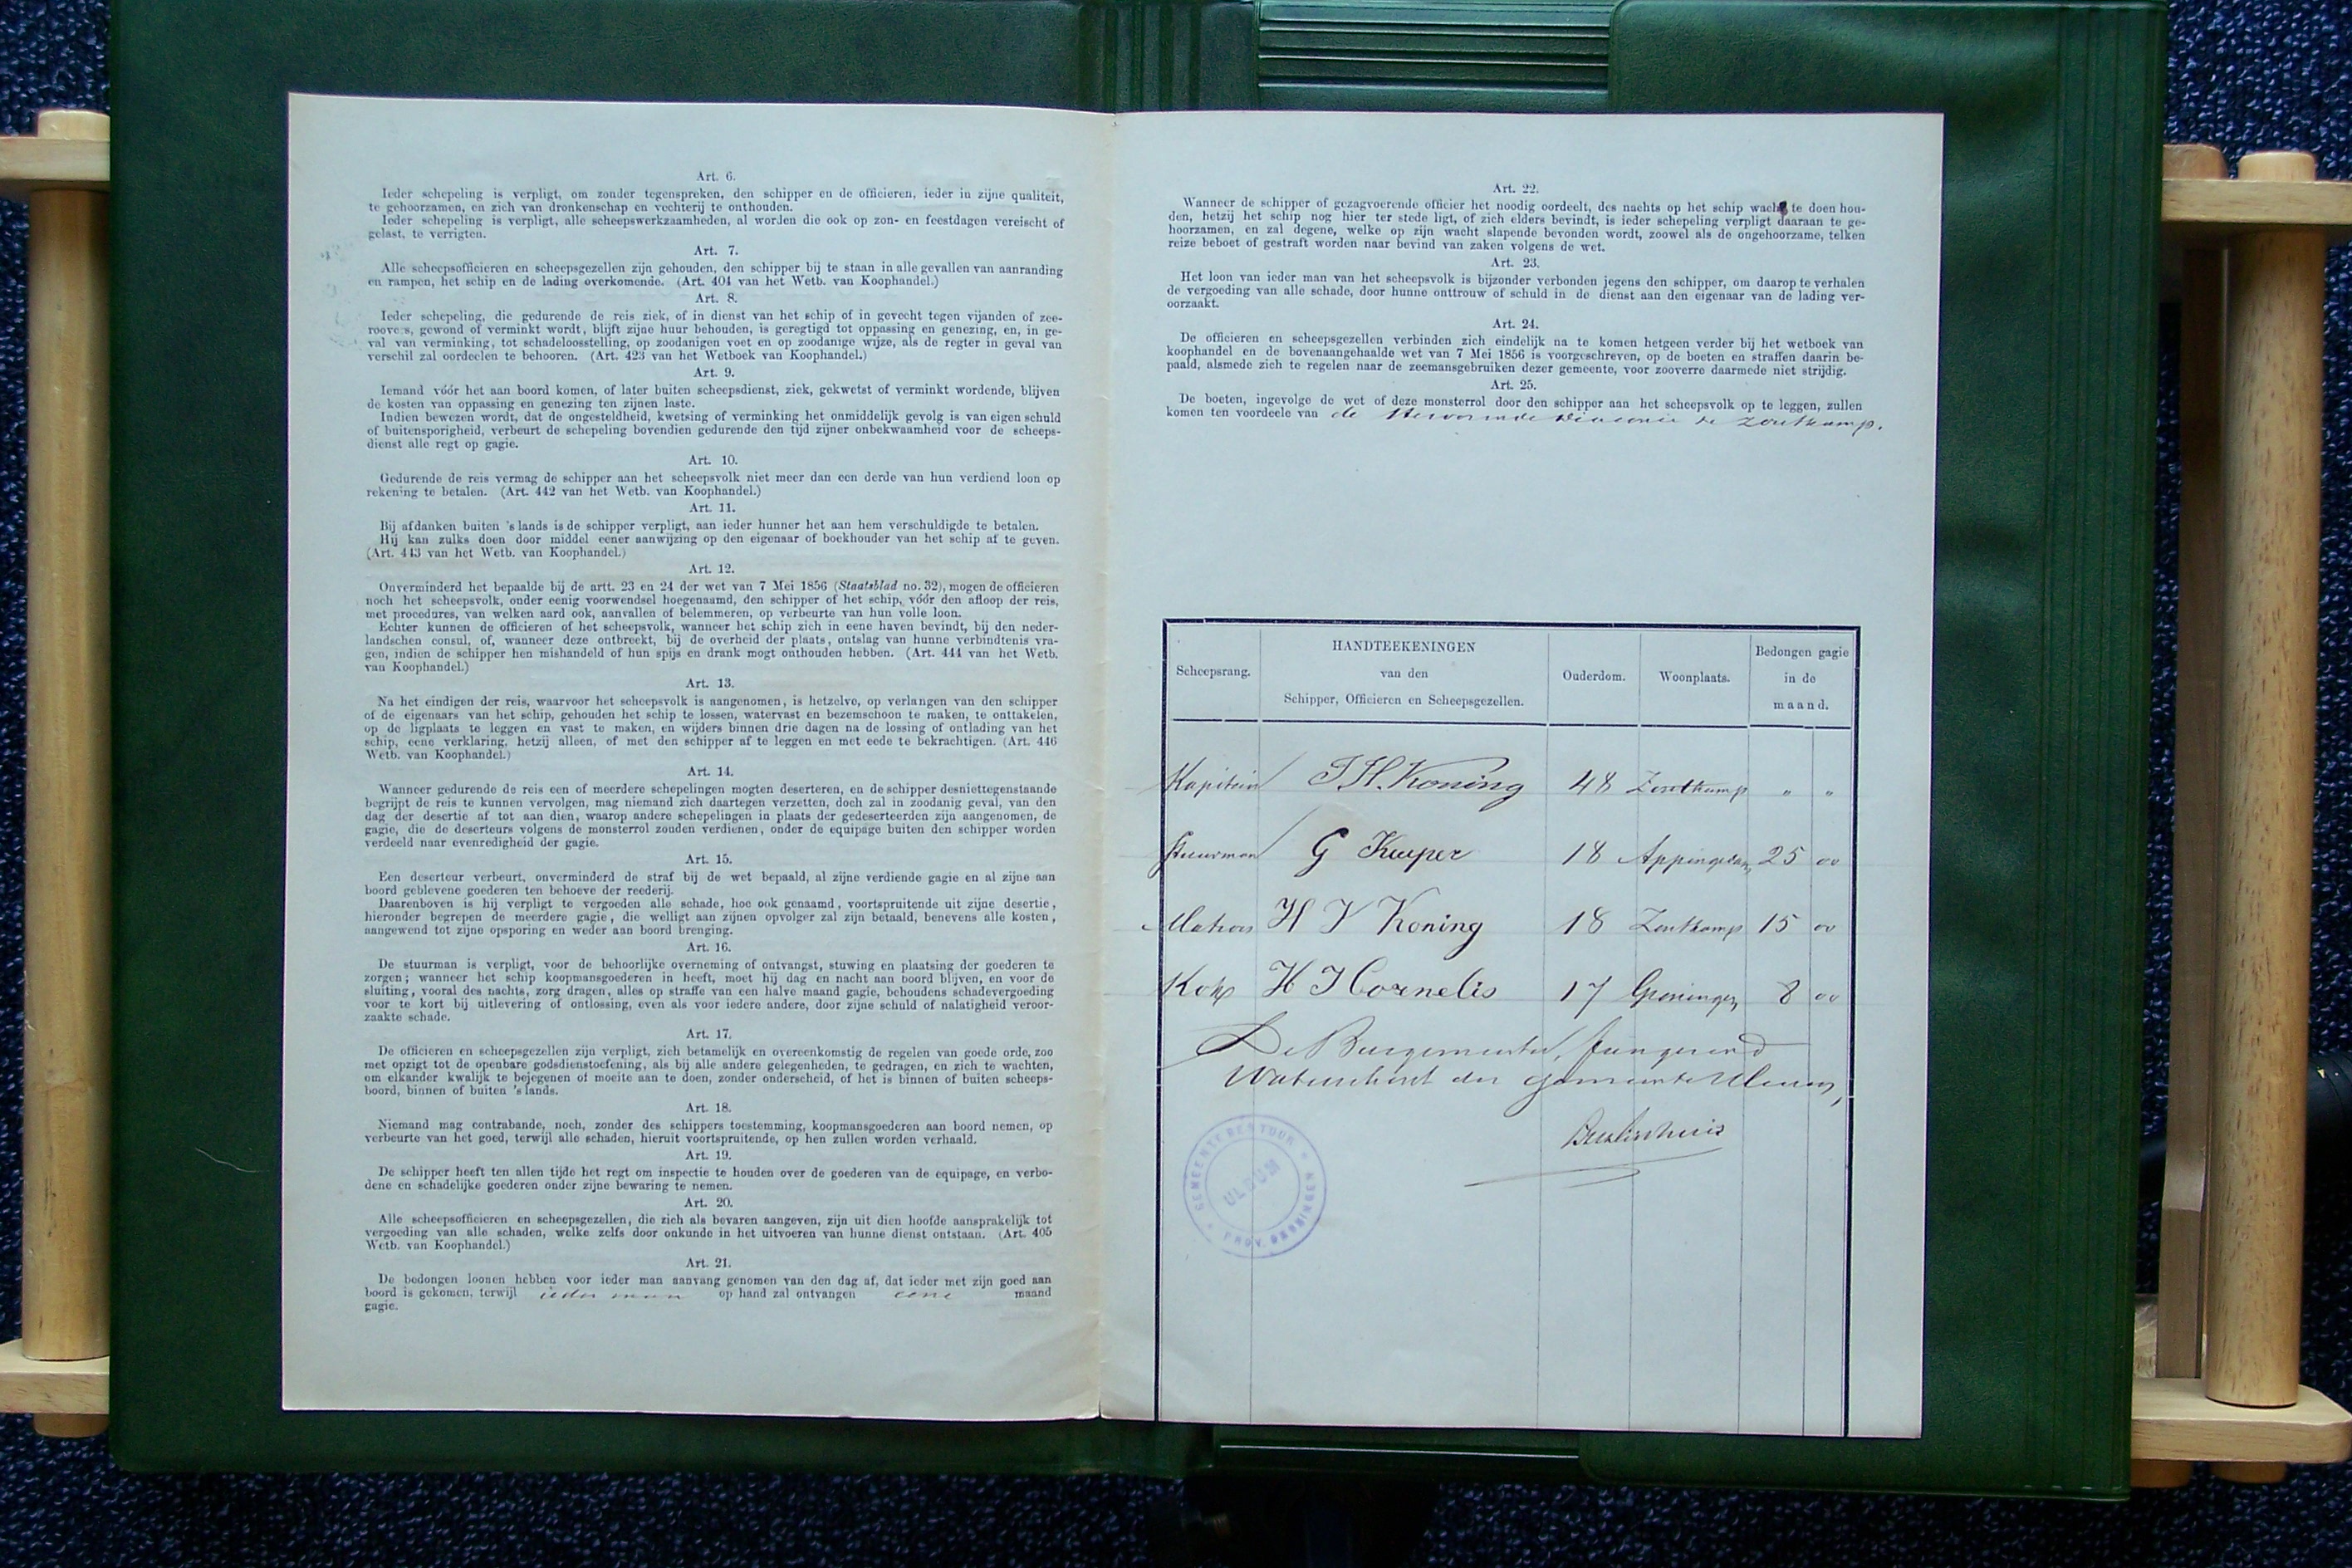 Art. 6.
Ieder schepeling is verpligt, om zonder tegenspreken, den schipper en de officieren, ieder in zijne qualiteit,
te gehoorzamen, en zich van dronkenschap en vechterij te onthouden.
Ieder schepeling is verpligt, alle scheepswerkzaamheden, al worden die ook op zon- en feestdagen vereischt of
gelast, te verrigten.
Art. 7.
Alle scheepsofficieren en scheepsgezellen zijn gehouden, den schipper bij te staan in alle gevallen van aanranding
en rampen, het schip en de lading overkomende. (Art. 401 van het Wetb. van Koophandel.)
Art. 8.
Ieder schepeling, die gedurende de reis ziek, of in dienst van het schip of in gevecht tegen vijanden of zee-
roovers, gewond of verminkt wordt, blijft zijne huur behouden, is geregtigd tot oppassing en genezing, en, in ge-
val van verminking, tot schadeloosstelling, op zoodanigen voet en op zoodanige wijze, als de regter in geval van
verschil zal oordeelen te behooren. (Art. 423 van het Wetboek van Koophandel.)
Art. 9.
Iemand vóór het aan boord komen, of later buiten scheepsdienst, ziek, gekwetst of verminkt wordende, blijven
de kosten van oppassing en genezing ten zijnen laste.
Indien bewezen wordt, dat de ongesteldheid, kwetsing of verminking het onmiddelijk gevolg is van eigen schuld
of buitensporigheid, verbeurt de schepeling bovendien gedurende den tijd zijner onbekwaamheid voor de scheeps-
dienst alle regt op gagie.
Art. 10.
Gedurende de reis vermag de schipper aan het scheepsvolk niet meer dan een derde van hun verdiend loon op
rekening te betalen. (Art. 442 van het Wetb. van Koophandel.)
Art. 11.
Bij afdanken buiten 's lands is de schipper verpligt, aan ieder hunner het aan hem verschuldigde te betalen.
Hij kan zulks doen door middel eener aanwijzing op den eigenaar of boekhouder van het schip af te geven.
(Art. 443 van het Wetb. van Koophandel.)
Art. 12.
Onverminderd het bepaalde bij de artt. 23 en 24 der wet van 7 Mei 1856 (Staatsblad no. 32), mogen de officieren
noch het scheepsvolk, onder eenig voorwendsel hoegenaamd, den schipper of het schip, vóór den afloop der reis,
met procedures, van welken aard ook, aanvallen of belemmeren, op verbeurte van hun volle loon.
Echter kunnen de officieren of het scheepsvolk, wanneer het schip zich in eene haven bevindt, bij den neder-
landschen consul, of, wanneer deze ontbreekt, bij de overheid der plaats, ontslag van hunne verbindtenis vra-
gen, indien de schipper hen mishandeld of hun spijs en drank mogt onthouden hebben. (Art. 444 van het Wetb.
van Koophandel.)
Art. 13.
Na het eindigen der reis, waarvoor het scheepsvolk is aangenomen, is hetzelve, op verlangen van den schipper
of de eigenaars van het schip, gehouden het schip te lossen, watervast en bezemschoon te maken, te onttakelen,
op de ligplaats te leggen en vast te maken, en wijders binnen drie dagen na de lossing of ontlading van het
schip, eene verklaring, hetzij alleen, of met den schipper af te leggen en met eede te bekrachtigen. (Art. 446
Wetb. van Koophandel.)
Art. 14.
Wanneer gedurende de reis een of meerdere schepelingen mogten deserteren, en de schipper desniettegenstaande
begrijpt de reis te kunnen vervolgen, mag niemand zich daartegen verzetten, doch zal in zoodanig geval, van den
dag der desertie af tot aan dien, waarop andere schepelingen in plaats der gedeserteerden zijn aangenomen, de
gagie, die de deserteurs volgens de monsterrol zouden verdienen, onder de equipage buiten den schipper worden
verdeeld naar evenredigheid der gagie.
Art. 15.
Een deserteur verbeurt, onverminderd de straf bij de wet bepaald, al zijne verdiende gagie en al zijne aan
boord geblevene goederen ten behoeve der reederij.
Daarenboven is hij verpligt te vergoeden alle schade, hoe ook genaamd, voortspruitende uit zijne desertie,
hieronder begrepen de meerdere gagie, die welligt aan zijnen opvolger zal zijn betaald, benevens alle kosten,
aangewend tot zijne opsporing en weder aan boord brenging.
Art. 16.
De stuurman is verpligt, voor de behoorlijke overneming of ontvangst, stuwing en plaatsing der goederen te
zorgen; wanneer het schip koopmansgoederen in heeft, moet hij dag en nacht aan boord blijven, en voor de
sluiting, vooral des nachts, zorg dragen, alles op straffe van een halve maand gagie, behoudens schadevergoeding
voor te kort bij uitlevering of ontlossing, even als voor iedere andere, door zijne schuld of nalatigheid veroor-
zaakte schade.
Art. 17.
De officieren en scheepsgezellen zijn verpligt, zich betamelijk en overeenkomstig de regelen van goede orde, zoo
met opzigt tot de openbare godsdienstoefening, als bij alle andere gelegenheden, te gedragen, en zich te wachten,
om elkander kwalijk te bejegenen of moeite aan te doen, zonder onderscheid, of het is binnen of buiten scheeps-
boord, binnen of buiten 's lands.
Art. 18.
Niemand mag contrabande, noch, zonder des schippers toestemming, koopmansgoederen aan boord nemen, op
verbeurte van het goed, terwijl alle schaden, hieruit voortspruitende, op hen zullen worden verhaald.
Art. 19.
De schipper heeft ten allen tijde het regt om inspectie te houden over de goederen van de equipage, en verbo-
dene en schadelijke goederen onder zijne bewaring te nemen.
Art. 20.
Alle scheepsofficieren en scheepsgezellen, die zich als bevaren aangeven, zijn uit dien hoofde aansprakelijk tot
vergoeding van alle schaden, welke zelfs door onkunde in het uitvoeren van hunne dienst ontstaan. (Art. 405
Wetb. van Koophandel.)
Art. 21.
De bedongen loonen hebben voor ieder man aanvang genomen van den dag af, dat ieder met zijn goed aan
boord is gekomen, terwijl ieder man op hand zal ontvangen eene maand
gagie.
Art. 22.
Wanneer de schipper of gezagvoerende officier het noodig oordeelt, des nachts op het schip wacht te doen hou-
den, hetzij het schip nog hier ter stede ligt, of zich elders bevindt, is ieder schepeling verpligt daaraan te ge-
hoorzamen, en zal degene, welke op zijn wacht slapende bevonden wordt, zoowel als de ongehoorzame, telken
reize beboet of gestraft worden naar bevind van zaken volgens de wet.
Art. 23.
Het loon van ieder man van het scheepsvolk is bijzonder verbonden jegens den schipper, om daarop te verhalen
de vergoeding van alle schade, door hunne onttrouw of schuld in de dienst aan den eigenaar van de lading ver-
oorzaakt.
Art. 24.
De officieren en scheepsgezellen verbinden zich eindelijk na te komen hetgeen verder bij het wetboek van
koophandel en de bovenaangehaalde wet van 7 Mei 1856 is voorgeschreven, op de boeten en straffen daarin be-
paald, alsmede zich te regelen naar de zeemansgebruiken dezer gemeente, voor zooverre daarmede niet strijdig.
Art. 25.
De boeten, ingevolge de wet of deze monsterrol door den schipper aan het scheepsvolk op te leggen, zullen
komen ten voordeele van de Hervormde diaconie te Zoutkamp.
Scheepsrang. HANDTEEKENINGEN van den Schipper, Officieren en Scheepsgezellen. Ouderdom. Woonplaats. Bedongen gagie in de maand.
Kapitein J H. Koning 48 Zoutkamp " "
Stuurman G Kuiper 18 Appingedam 25 00
Matroos H J Koning 18 Zoutkamp 15 00
Kok H J Cornelis 17 Groningen 8 00
De Burgemeester, fungerend
Waterschout der gemeente Ulrum,
GEMEENTE BESTUUR
ULRUM
PROV. GRONINGEN